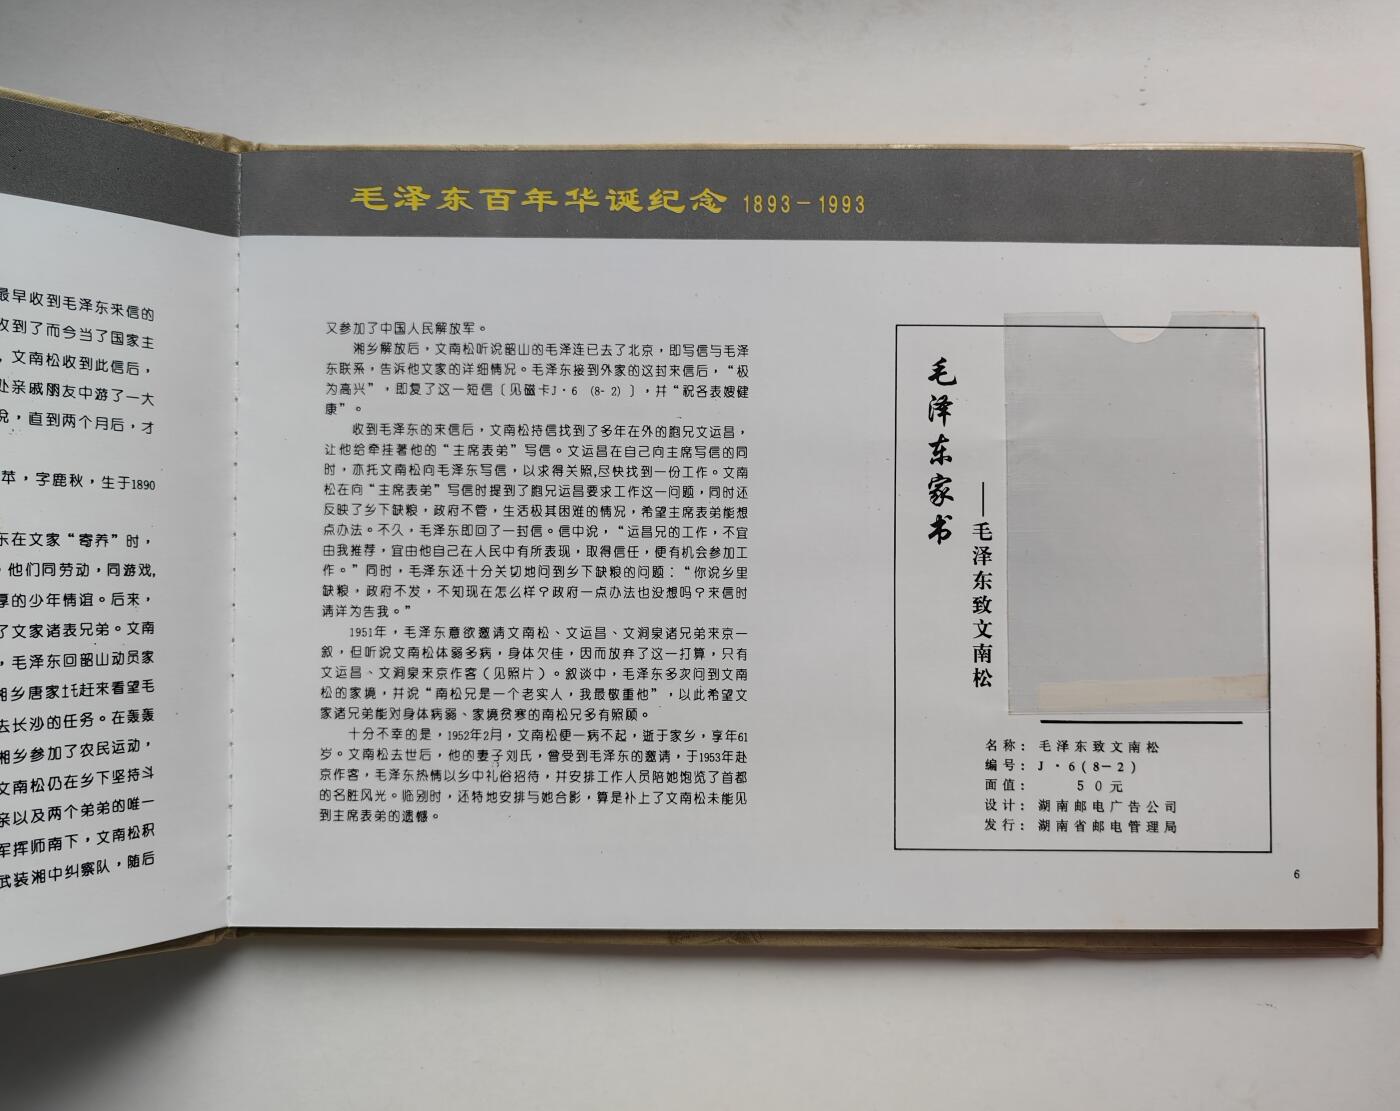 最早收到毛泽东来信的
收到了而今当了国家主
，文南松收到此信后，
处亲戚朋友中游了一大
说，直到两个月后，才
苹，字鹿秋，生于1890
东在文家“寄养”时，
，他们同劳动，同游戏，
厚的少年情谊。后来，
了文家诸表兄弟。文南
，毛泽东回韶山动员家
湘乡唐家圫赶来看望毛
去长沙的任务。在轰轰
湘乡参加了农民运动，
文南松仍在乡下坚持斗
亲以及两个弟弟的唯一
军挥师南下，文南松积
武装湘中纠察队，随后
毛泽东百年华诞纪念 1893－1993
又参加了中国人民解放军。
湘乡解放后，文南松听说韶山的毛泽连已去了北京，即写信与毛泽
东联系，告诉他文家的详细情况。毛泽东接到外家的这封来信后，“极
为高兴”，即复了这一短信〔见磁卡J·6 (8-2)〕，并“祝各表嫂健
康”。
收到毛泽东的来信后，文南松持信找到了多年在外的胞兄文运昌，
让他给牵挂著他的“主席表弟”写信。文运昌在自己向主席写信的同
时，亦托文南松向毛泽东写信，以求得关照,尽快找到一份工作。文南
松在向“主席表弟”写信时提到了胞兄运昌要求工作这一问题，同时还
反映了乡下缺粮，政府不管，生活极其困难的情况，希望主席表弟能想
点办法。不久，毛泽东即回了一封信。信中说，“运昌兄的工作，不宜
由我推荐，宜由他自己在人民中有所表现，取得信任，便有机会参加工
作。”同时，毛泽东还十分关切地问到乡下缺粮的问题：“你说乡里
缺粮，政府不发，不知现在怎么样？政府一点办法也没想吗？来信时
请详为告我。”
1951年，毛泽东意欲邀请文南松、文运昌、文涧泉诸兄弟来京一
叙，但听说文南松体弱多病，身体欠佳，因而放弃了这一打算，只有
文运昌、文涧泉来京作客（见照片）。叙谈中，毛泽东多次问到文南
松的家境，并说“南松兄是一个老实人，我最敬重他”，以此希望文
家诸兄弟能对身体病弱、家境贫寒的南松兄多有照顾。
十分不幸的是，1952年2月，文南松便一病不起，逝于家乡，享年61
岁。文南松去世后，他的妻子刘氏，曾受到毛泽东的邀请，于1953年赴
京作客，毛泽东热情以乡中礼俗招待，并安排工作人员陪她饱览了首都
的名胜风光。临别时，还特地安排与她合影，算是补上了文南松未能见
到主席表弟的遗憾。
毛泽东家书
——毛泽东致文南松
名称：毛泽东致文南松
编号：J·6(8－2)
面值：50元
设计：湖南邮电广告公司
发行：湖南省邮电管理局
6